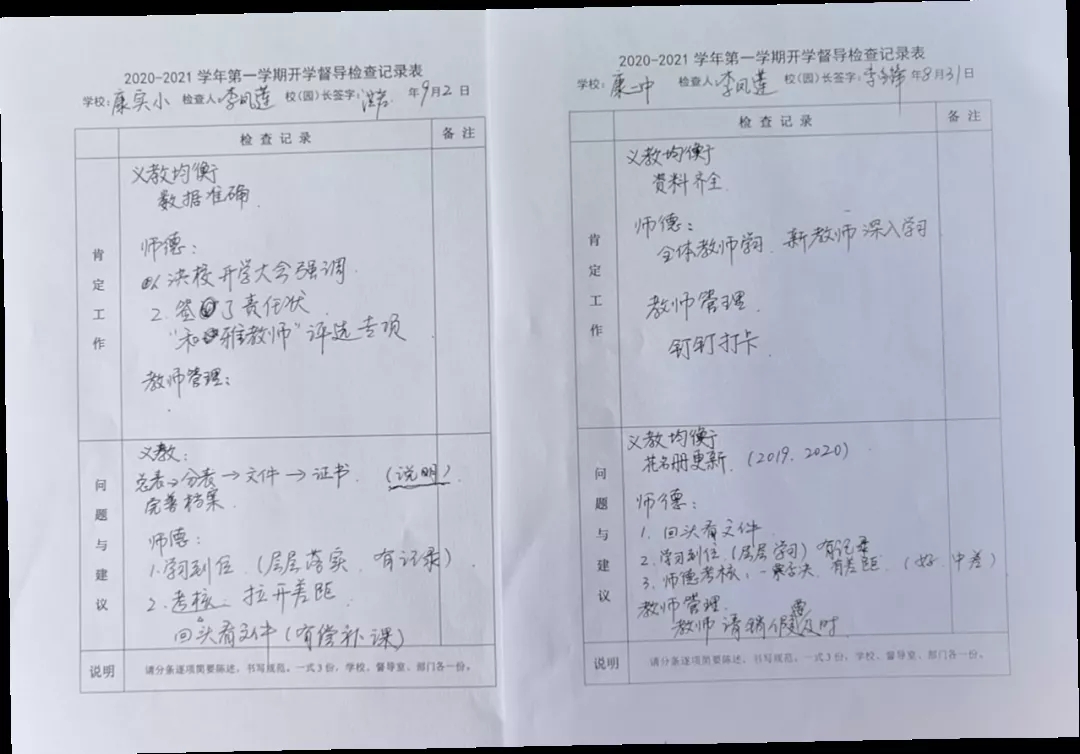 2020-2021 学年第一学期开学督导检查记录表
学校：康实小 检查人：李凤莲 校（园）长签字： 年9月2日
检查记录 备注
肯定工作
义教均衡
数据准确
师德：
1. 决校开学大会强调
2. 签了责任状
"和雅教师"评选专项
教师管理：
问题与建议
义教：
总表→分表→文件→证书 （说明）
完善档案
师德：
1. 学习到位（层层落实 有记录）
2. 考核 拉开差距
回头看文件（有偿补课）
说明 请分条逐项简要陈述，书写规范。一式3份，学校、督导室、部门各一份。
2020-2021 学年第一学期开学督导检查记录表
学校：康一中 检查人：李凤莲 校（园）长签字： 年8月31日
检查记录 备注
肯定工作
义教均衡
资料齐全
师德：
全体教师学习 新教师深入学习
教师管理
钉钉打卡
问题与建议
义教均衡
花名册更新 （2019. 2020）
师德：
1. 回头看文件
2. 学习到位（层层学习）有记录
3. 师德考核， 有差距 （好 中 差）
教师管理
教师请销假要及时
说明 请分条逐项简要陈述，书写规范。一式3份，学校、督导室、部门各一份。